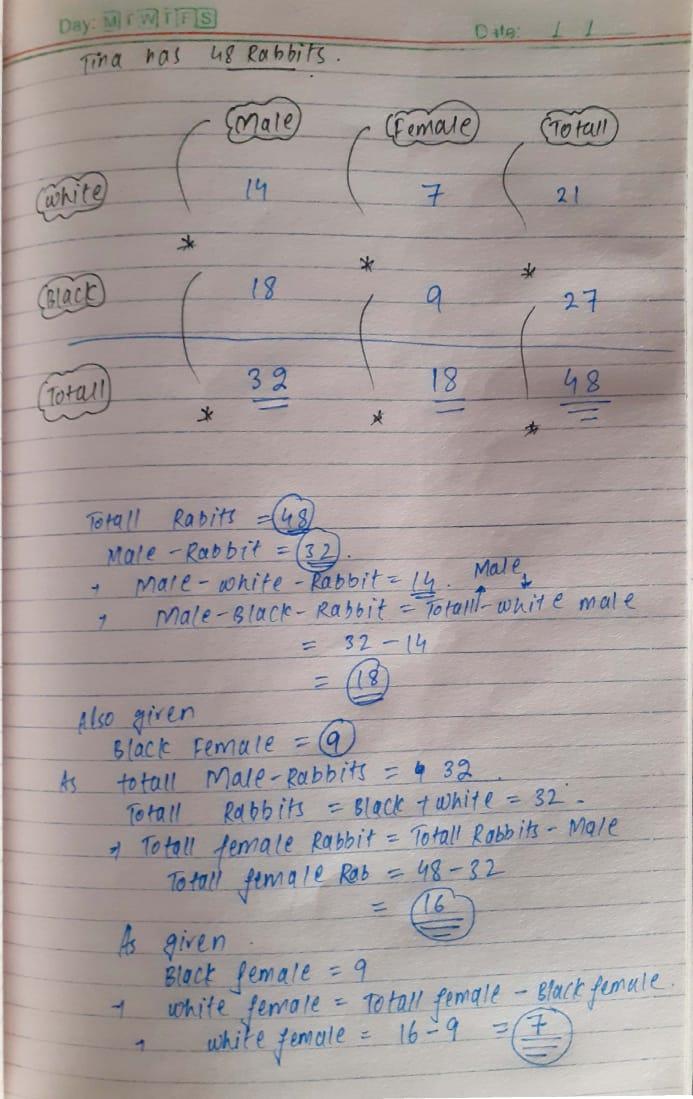 Day: M T W T F S
Date:
Tina has 48 Rabbits.
Male Female Totall
White 14 7 21
* * *
Black 18 9 27
Totall 32 18 48
* * *
Totall Rabits = 48
Male - Rabbit = 32.
Male - white - Rabbit = 14. Male
Male - Black - Rabbit = Totall - white male
= 32 - 14
= 18
Also given
Black Female = 9
As totall Male - Rabbits = 32
Totall Rabbits = Black + white = 32.
Totall female Rabbit = Totall Rabbits - Male
Totall female Rab = 48 - 32
= 16
As given
Black female = 9
white female = Totall female - Black female.
white female = 16 - 9 = 7